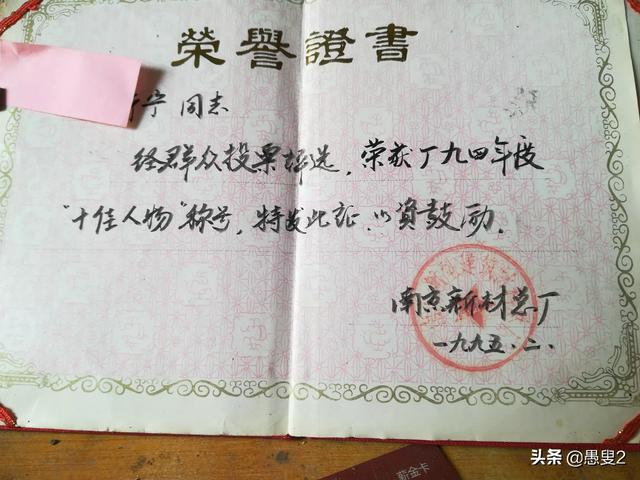 榮譽證書
宁 同志
经群众投票评选，荣获厂九四年度
“十佳人物”称号，特发此证，以资鼓励。
南京新材总厂
一九九五.二.
薪金卡
头条 @愚叟2